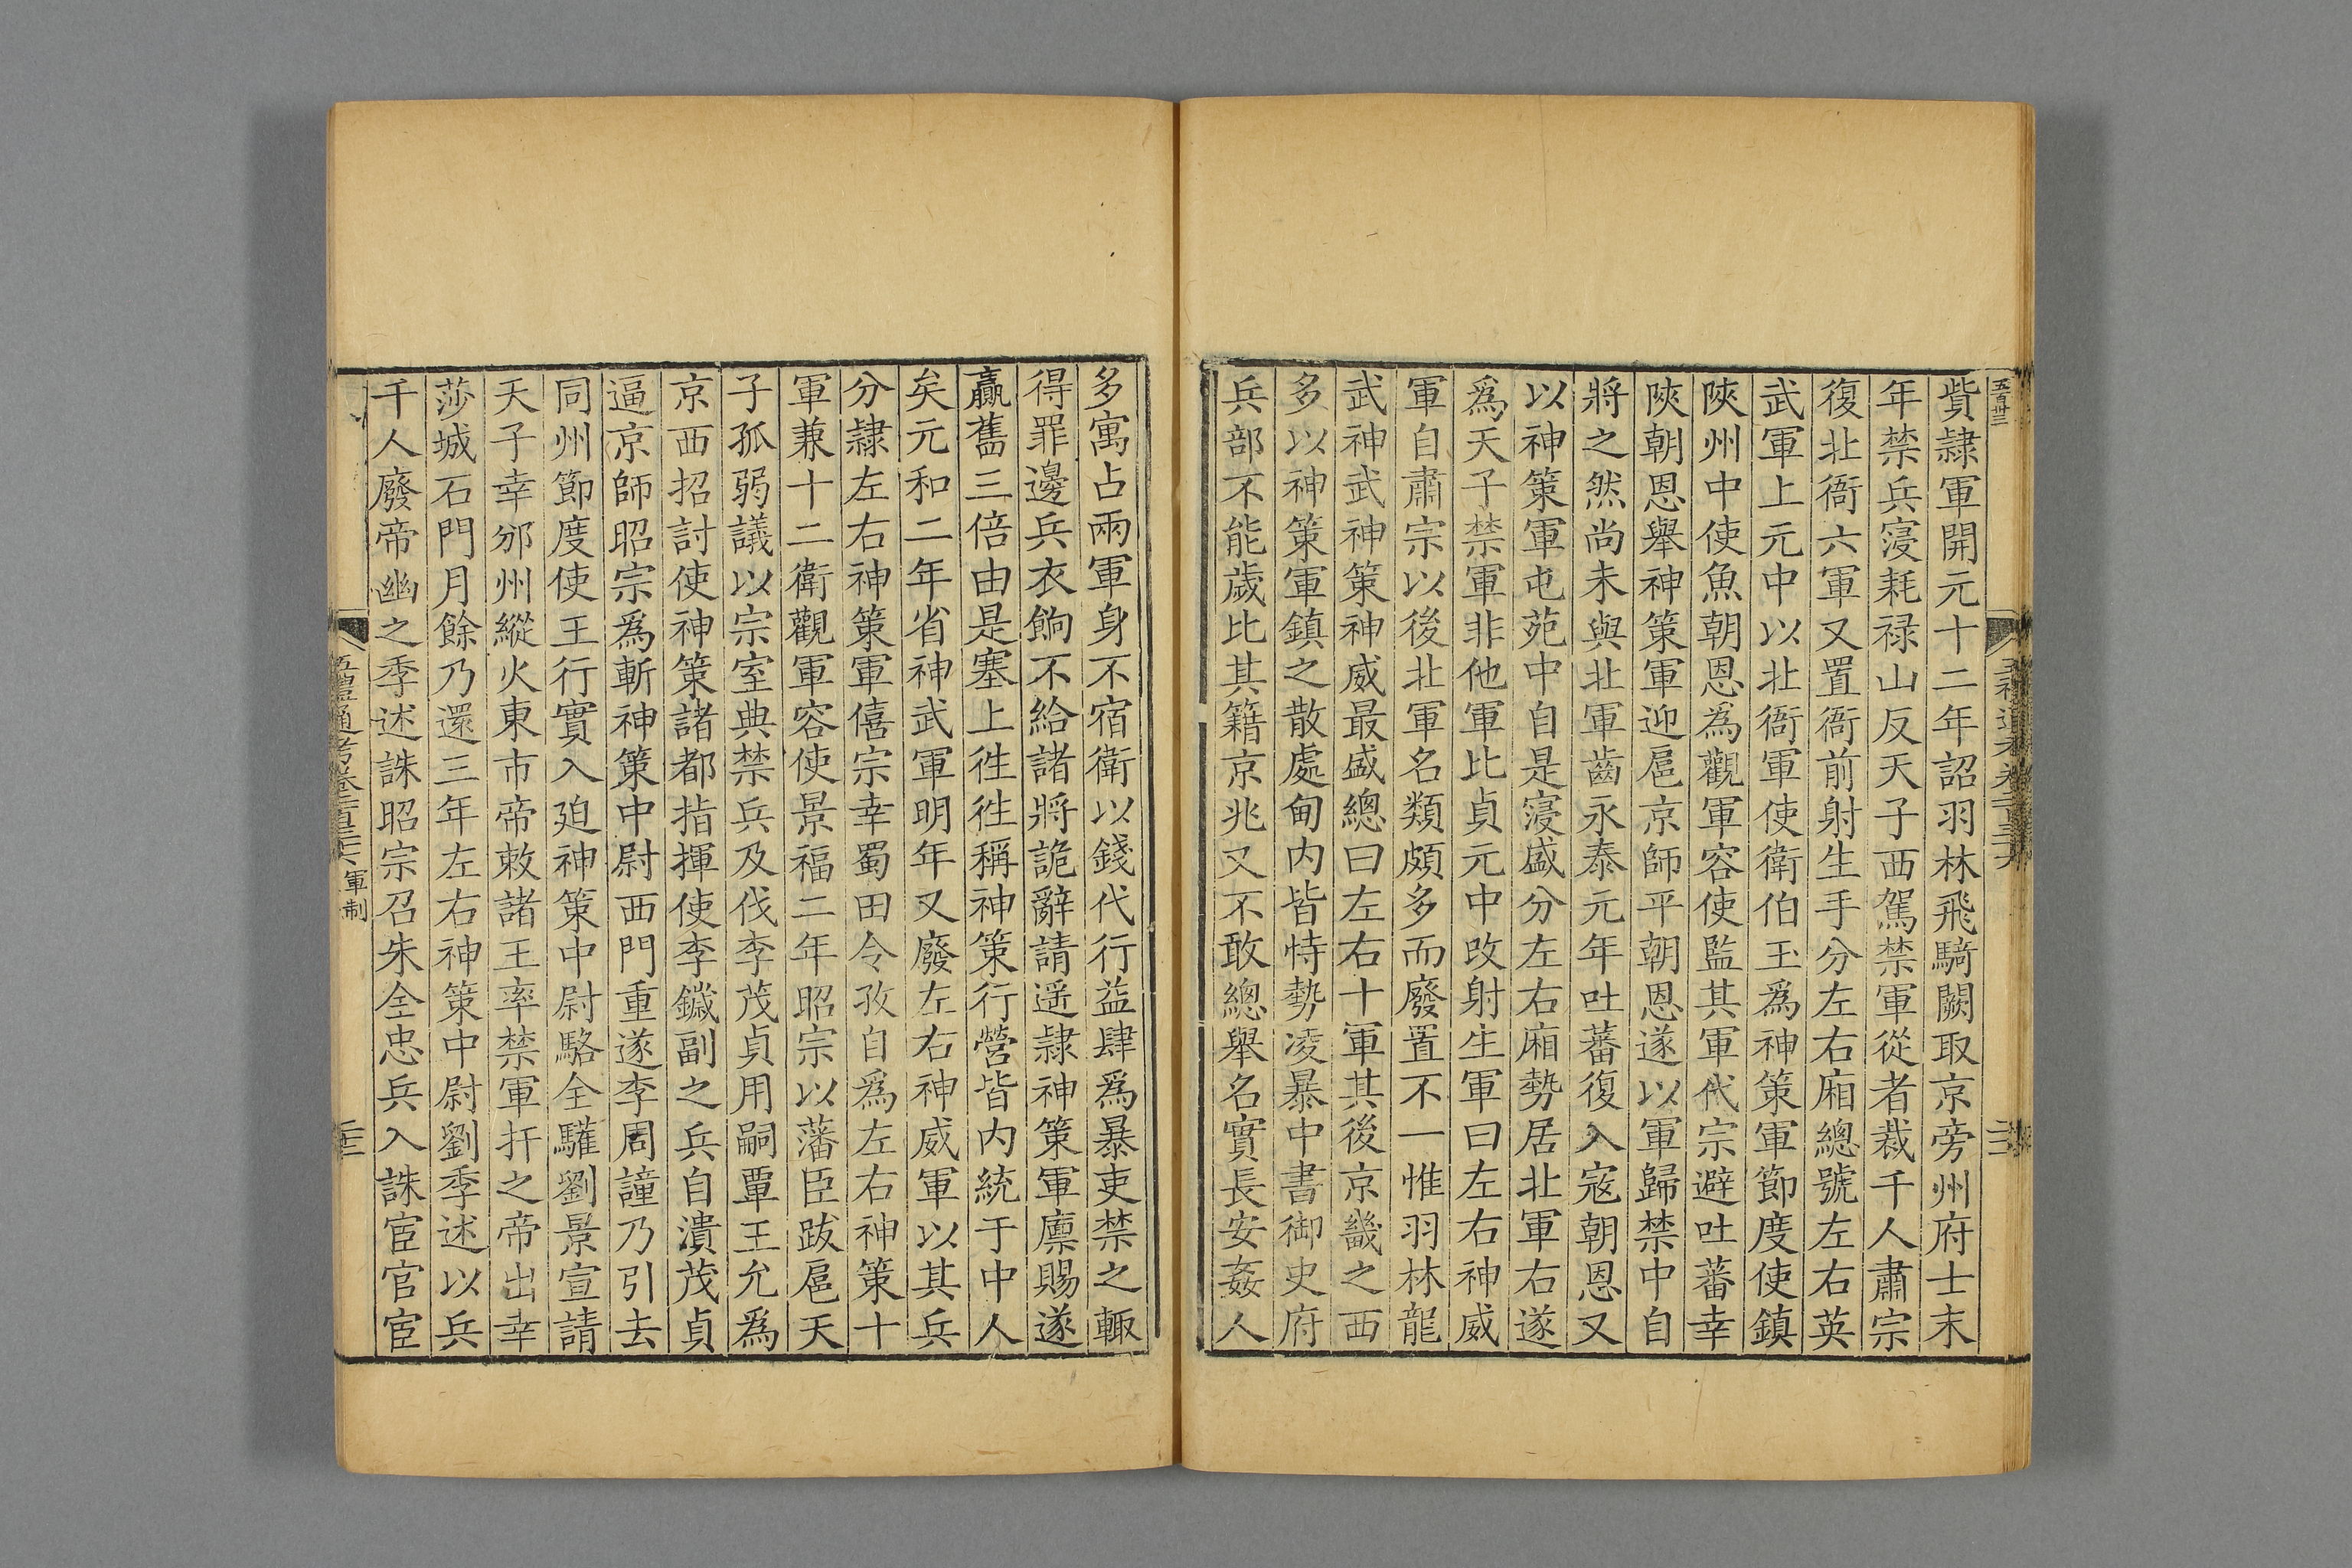 五百卅三
貲隷軍開元十二年詔羽林飛騎闕取京旁州府士末
年禁兵寖耗祿山反天子西駕禁軍從者裁千人肅宗
復北衙六軍又置衙前射生手分左右廂總號左右英
武軍上元中以北衙軍使衛伯玉爲神策軍節度使鎮
陝州中使魚朝恩爲觀軍容使監其軍代宗避吐蕃幸
陝朝恩舉神策軍迎扈京師平朝恩遂以軍歸禁中自
將之然尚未與北軍齒永泰元年吐蕃復入寇朝恩又
以神策軍屯苑中自是寖盛分左右廂勢居北軍右遂
爲天子禁軍非他軍比貞元中改射生軍曰左右神威
軍自肅宗以後北軍名類頗多而廢置不一惟羽林龍
武神武神策神威最盛總曰左右十軍其後京畿之西
多以神策軍鎮之散處甸內皆恃勢凌暴中書御史府
兵部不能歲比其籍京兆又不敢總舉名實長安姦人
多寓占兩軍身不宿衛以錢代行益肆爲暴吏禁之輙
得罪邊兵衣餉不給諸將詭辭請遥隷神策軍廪賜遂
贏舊三倍由是塞上徃徃稱神策行營皆內統于中人
矣元和二年省神武軍明年又廢左右神威軍以其兵
分隷左右神策軍僖宗幸蜀田令孜自爲左右神策十
軍兼十二衛觀軍容使景福二年昭宗以藩臣跋扈天
子孤弱議以宗室典禁兵及伐李茂貞用嗣覃王允爲
京西招討使神策諸都指揮使李鐬副之兵自潰茂貞
逼京師昭宗爲斬神策中尉西門重遂李周𧬤乃引去
同州節度使王行實入廹神策中尉駱全驩劉景宣請
天子幸邠州縱火東市帝敕諸王率禁軍扞之帝出幸
莎城石門月餘乃還三年左右神策中尉劉季述以兵
千人廢帝幽之季述誅昭宗召朱全忠兵入誅宦官宦
五禮通考卷二百三十六 軍制